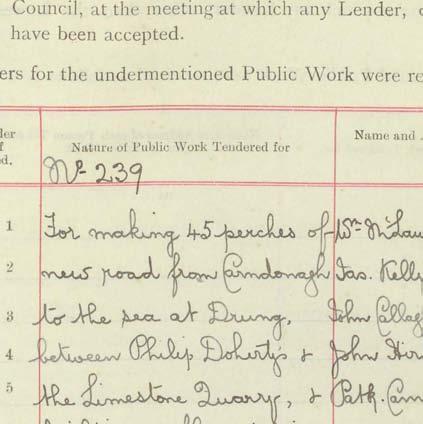 Council, at the meeting at which any Lender,
have been accepted.
ers for the undermentioned Public Work were re
der Nature of Public Work Tendered for Name and
f
d. No 239
1 For making 45 perches of Wm McLau
2 new road from Carndonagh Jas. Kelly
3 to the sea at Drung, John Callag
4 between Philip Doherty's & John Hir
5 the Limestone Quarry, & Patk. Cann